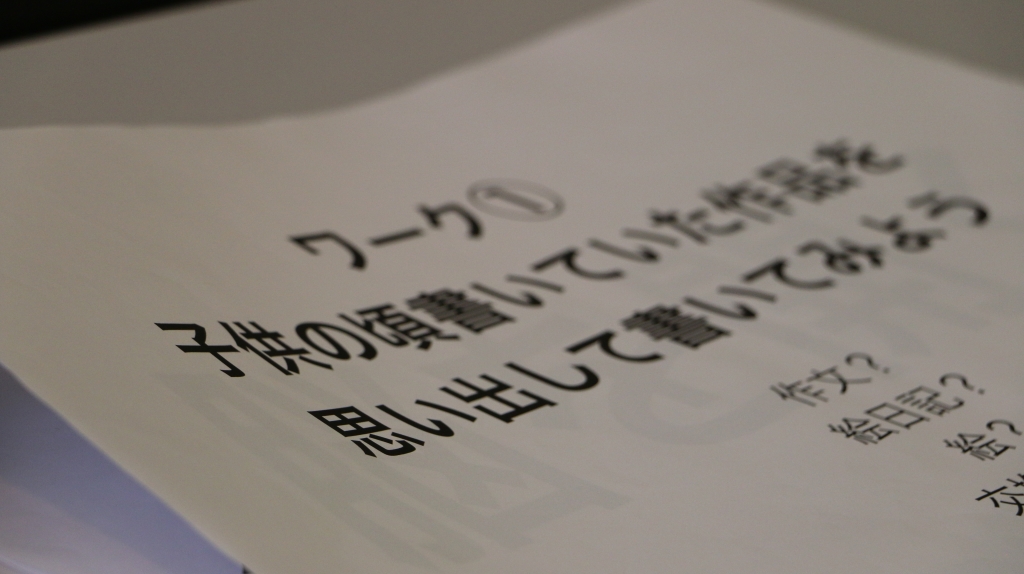 ワーク①
子供の頃書いていた作品を
思い出して書いてみよう
作文？
絵日記？
絵？